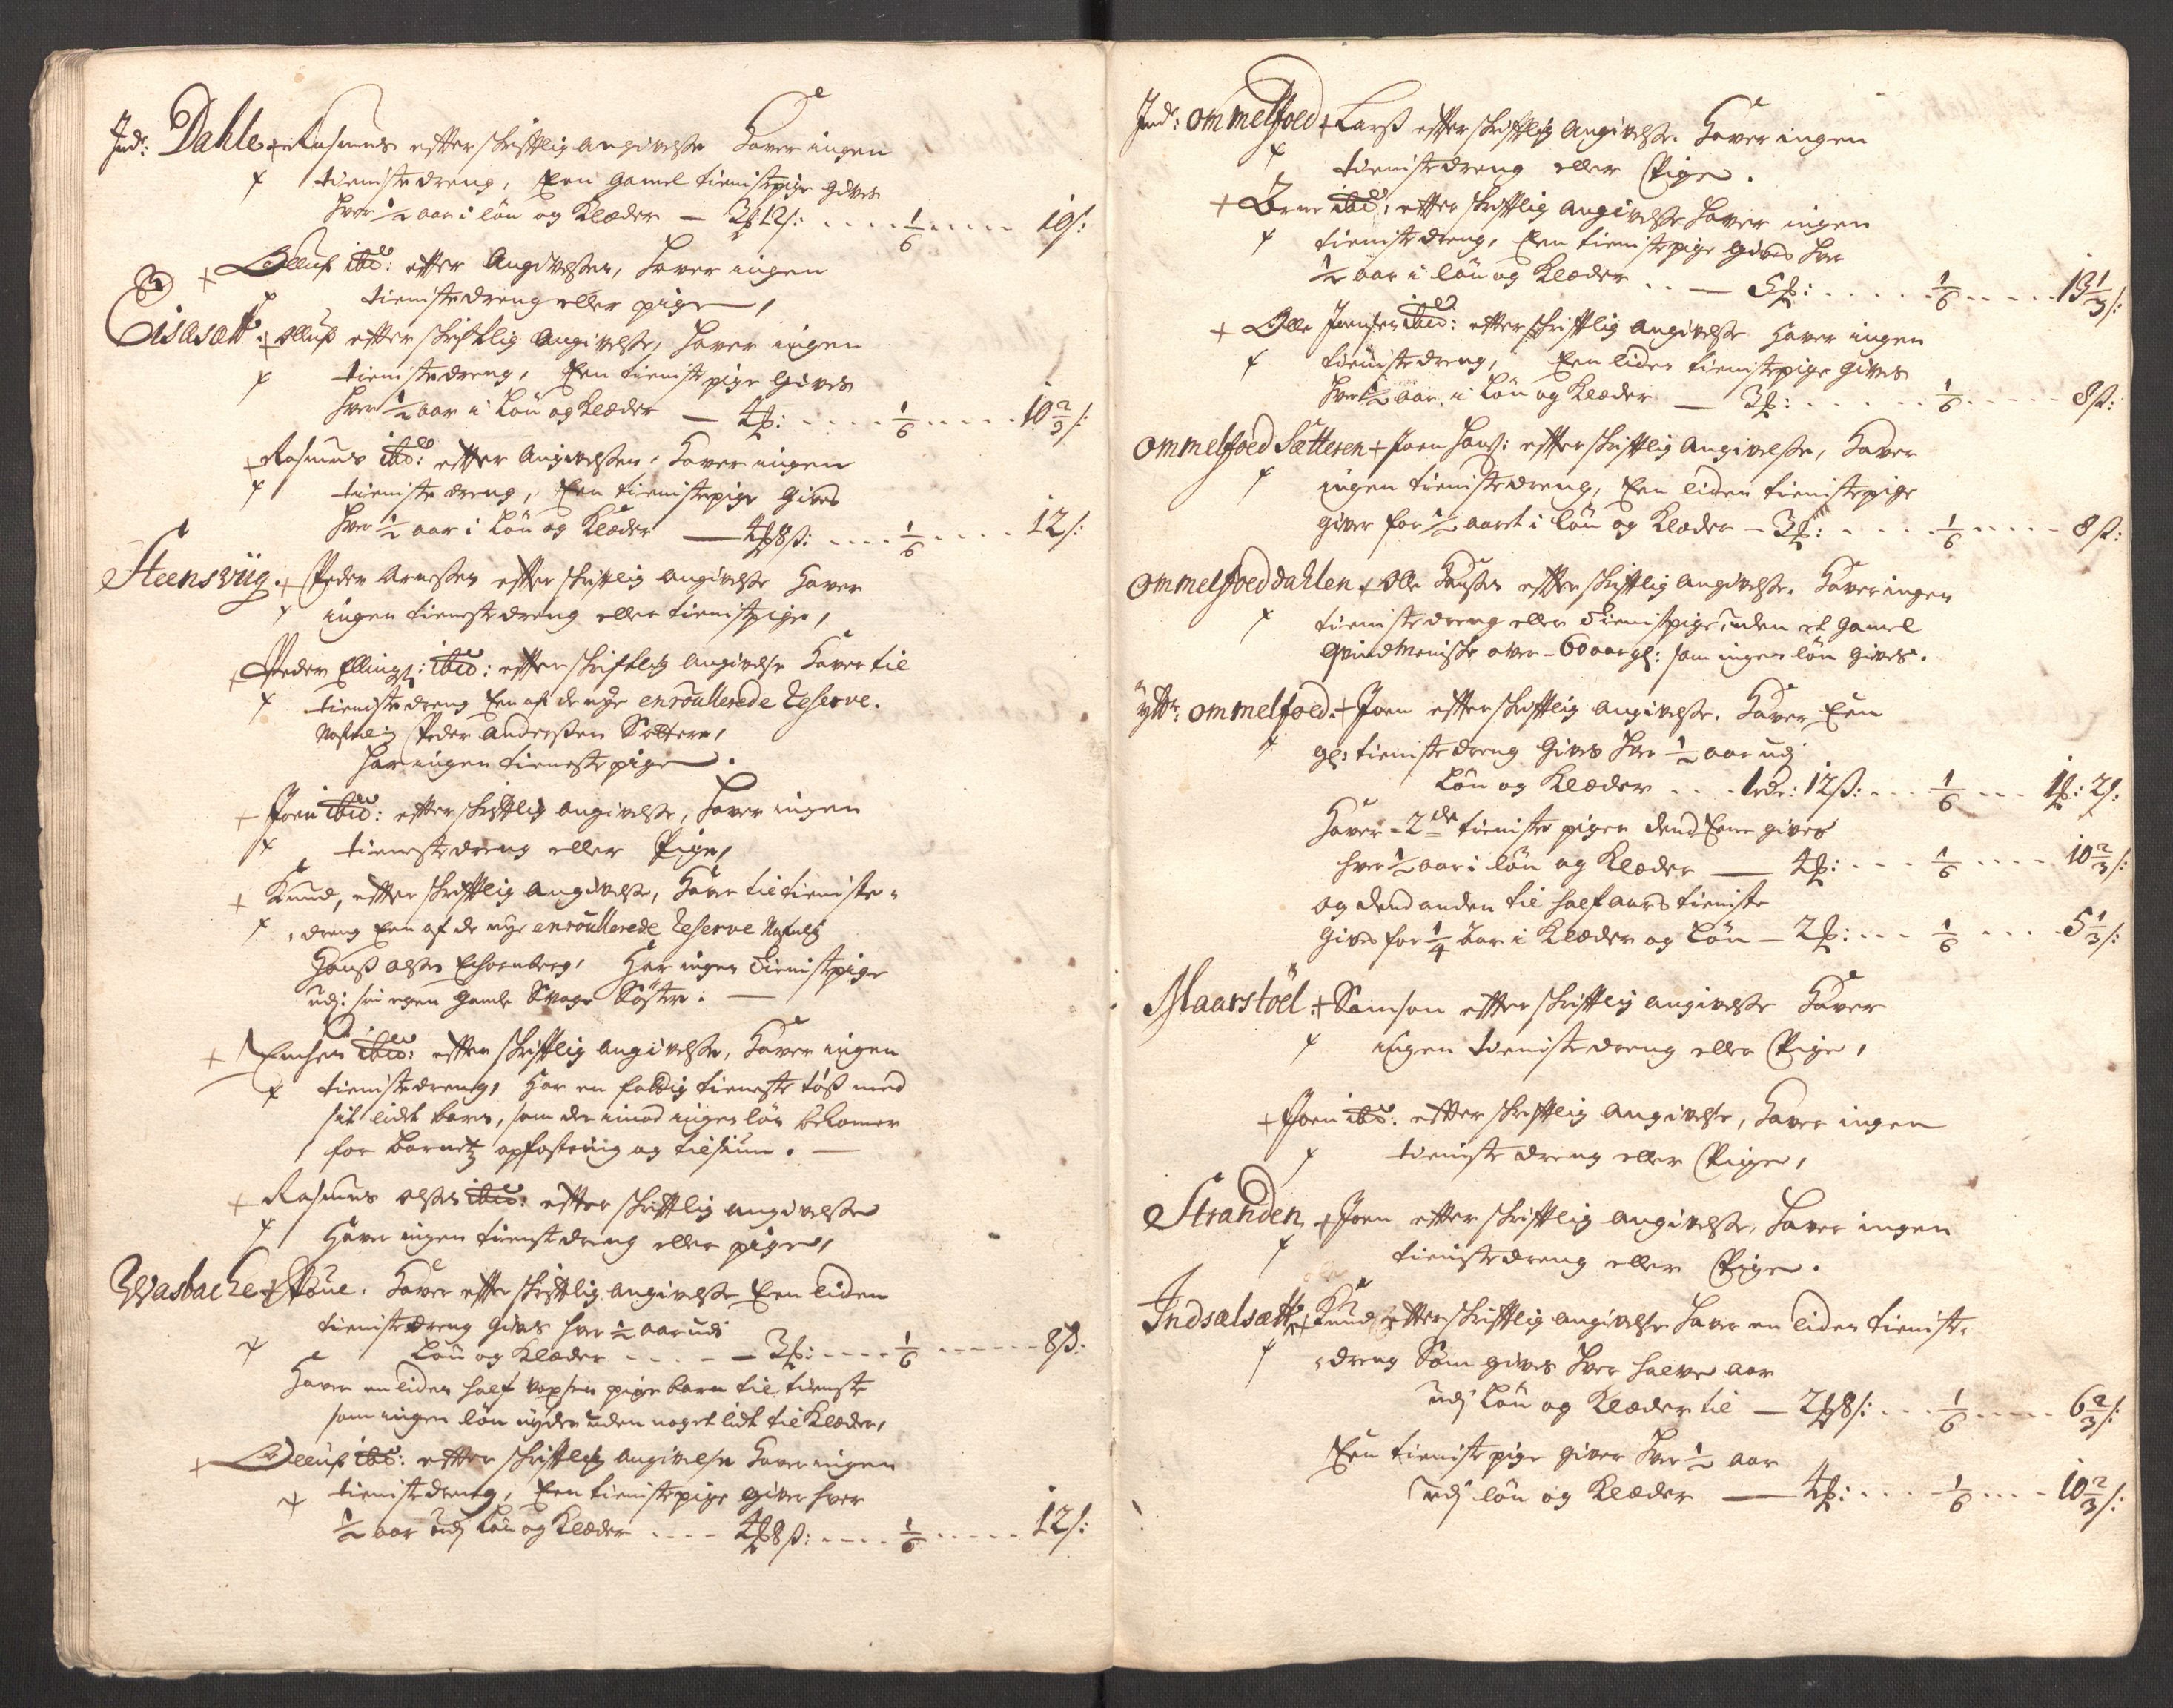 Ind: Dahle + Rasmus efter skriftlig angivelse Haver ingen
tieniste dreng, Een gamel tienistepige gives
hver 1/2 aar i løn og Klæder — 3 12 s: .... 1/6 ..... 10 s:
+ Olluf ibd: efter Angivelsen, haver ingen
tienistedreng eller pige,
Eisasætt: + Olluf efter skriftlig Angivelse, haver ingen
tienistedreng, Een tieniste pige gives
hver 1/2 aar i Løn og Klæder — 4: .... 1/6 .... 10 2/3 s:
+ Rasmus ibd: efter Angivelsen, haver ingen
tieniste dreng, Een tienistepige gives
hver 1/2 aar i Løn og Klæder — 4 8 s: .... 1/6 .... 12 s:
Steensviig. + Peder Arnesen efter skriftlig angivelse haver
ingen tieneste dreng eller tienistpige,
+ Peder Ellings: ibid: efter skriftlig angivelse haver til
tieniste dreng Een af de nye enroullerede Reserve.
Nafnlig Peder Andersen Sættere,
har ingen tieneste pige.
+ Joen ibid: efter skriftlig angivelse, haver ingen
tieneste dreng eller Pige,
+ Knud, efter skriftlig angivelse, haver til tieniste
dreng Een af de nye enroullerede Reserve Nafnlig
Hans Olsen, Har ingen tienistpige
udj sin egen gamle Svage Søster. —
+ ibid: efter skriftlig angivelse, haver ingen
tienistedreng, Har en fattig tieneste tøs med
sit lidt barn, som der imod ingen løn bekommer
for barnetz opfostring og tilsiun. —
+ Rasmus Olsen ibid: efter skriftlig angivelse
Haver ingen tieniste dreng eller pige,
Wasbache + Poue. Haver efter skriftlig angivelse Een liden
tienistedreng gives hver 1/2 aar udi
Løn og Klæder ..... — 3: .... 1/6 ...... 8 s:
Haver en liden half voxsen pige barn til tieneste
som ingen løn nyder uden noget lidt til Klæder,
+ Olluf ibd: efter skriftlig angivelse haver ingen
tienistedreng, Een tienistepige giver hver
1/2 aar udj Løn og Klæder .... 4 8 s: .... 1/6 ..... 12 s:
Ind: Ommelfoed + Lars efter skriftlig angivelse. Haver ingen
tienistedreng eller Pige.
+ Arne ibid: efter skriftlig angivelse haver ingen
tienistedreng, Een tienistepige gives hver
1/2 aar i løn og Klæder .. — 5: ..... 1/6 ..... 13 1/3 s:
+ Olle Joensen ibid: efter skriftlig angivelse haver ingen
tienistedreng, Een liden tienistepige gives
hver 1/2 aar i Løn og Klæder — 3: ...... 1/6 ..... 8 s:
Ommelfoed Sætteren + Joen Hans: efter skriftlig angivelse, haver
ingen tienistedreng, Een liden tienistepige
giver for 1/2 aaret i løn og Klæder — 3: .... 1/6 ..... 8 s:
Ommelfoeddahlen + Olle efter skriftlig angivelse. Haver ingen
tienistedreng eller tienistpige, uden et gamel
Qvindmeniske over 60 aar gl: som ingen løn gives.
ytr: Ommelfoed. + Joen efter skriftlig angivelse. Haver Een
gl: tienistedreng gives hver 1/2 aar udj
Løn og Klæder ... 1 rdr: 12 s: .... 1/6 ... 1: 2 s:
Haver 2de tieniste piger dend Eene gives
hver 1/2 aar i løn og Klæder — 4: ... 1/6 .... 10 2/3 s:
og dend anden til half aars tieniste
gives for 1/4 aar i Klæder og Løn — 2: ... 1/6 .... 5 1/3 s:
Maarstöel + Samson efter skriftlig angivelse Haver
ingen tienistedreng eller Pige,
+ Joen ibd: efter skriftlig angivelse, haver ingen
tieniste dreng eller Pige,
Stranden + Joen efter skriftlig angivelse, haver ingen
tienistedreng eller Pige.
Indsalsætt: + Knud efter skriftlig angivelse haver en liden tieniste
dreng Som gives hver halve aar
udj Løn og Klæder til — 2 8 s: ... 1/6 .... 6 2/3 s:
Een tieniste pige giver hver 1/2 aar
udj løn og Klæder — 4: .... 1/6 .... 10 2/3 s: